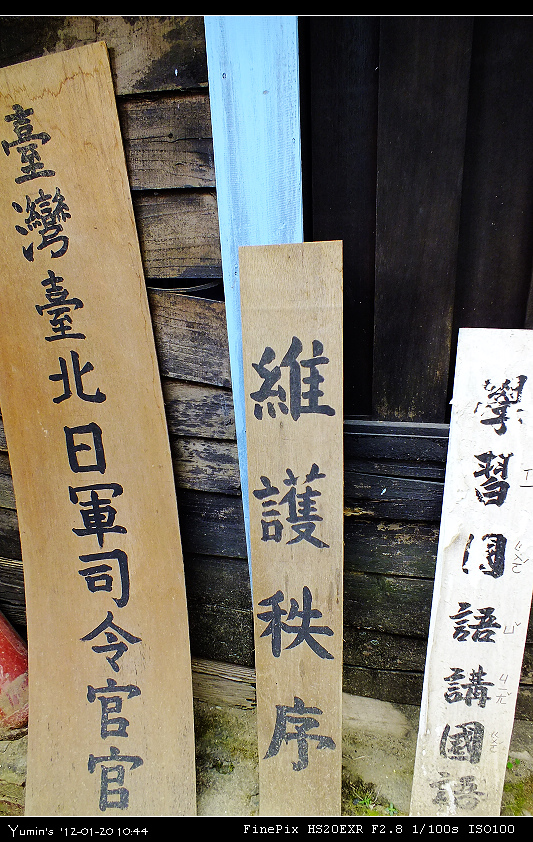 臺灣臺北日軍司令官官
維護秩序
學習國語講國語
Yumin's '12-01-20 10:44
FinePix HS20EXR F2.8 1/100s ISO100